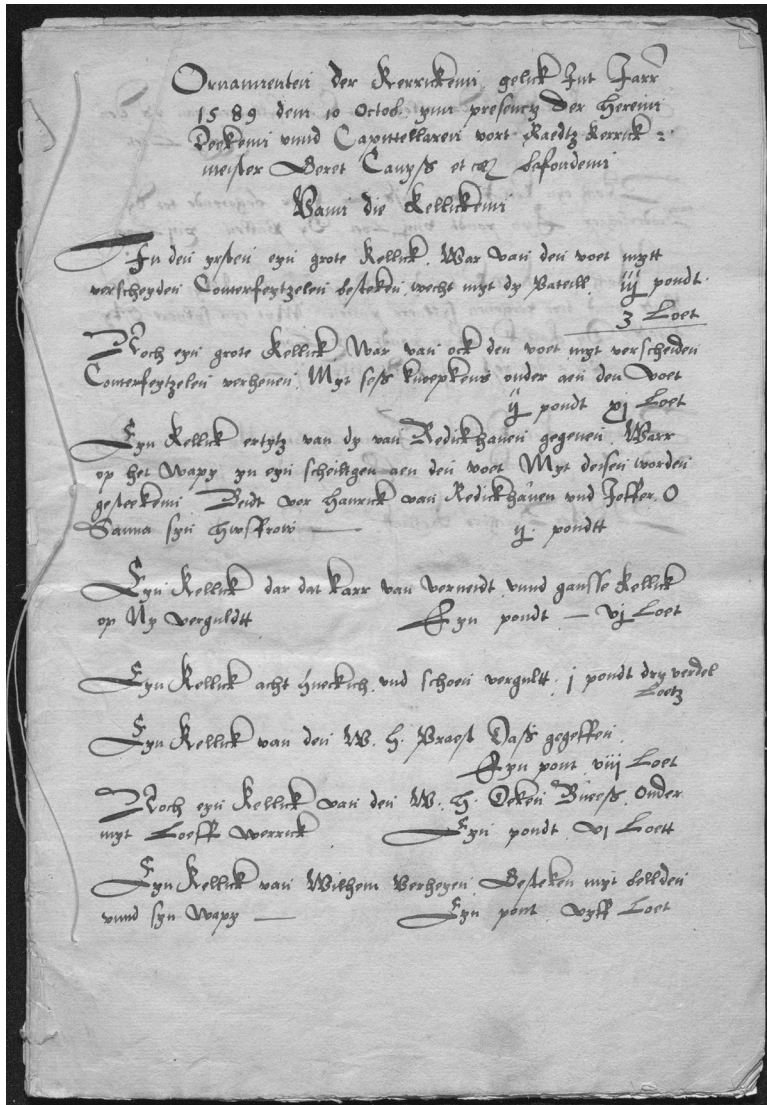 Ornamenten der Kerrickenn gelick Int Jarr
1589 denn 10 Octob. ynn presentz der herenn
Deekenn unnd Capittellaren vort Raedtz Kerrick=
meister Beret Canyss et cet befondenn
Vann die Kellickenn
In den yrsten eyn grote Kellick. War van den voet mytt
verscheyden Conterfeytzelen besteken wecht myt dy Pateill iij pondt.
3 Loet
Noch eyn grote Kellick War van ock den voet myt verscheiden
Conterfeytzelen verhenen. Myt sess knoepkens onder aen den Voet
ij pondt xj Loet
Eyn Kellick ertytz van dy van Redickhauen gegenen. Warr
op het Wapy yn eyn scheiltgen aen den voet Myt deisen worden
gesteekenn Beidt vor Hanrick van Redickhauen und Joffer O
Sanna syn Hwsfrow — ij pondtt
Eyn Kellick dar dat Karr van verneidt unnd gansse Kellick
op Ny verguldtt Eyn pondt — vj Loet
Eyn Kellick acht hueckich und schoen vergultt. j pondt dry verdel
Loetz
Eyn Kellick van den W. h. Praest Dass gegeffen.
Eyn pont viij Loet
Noch eyn Kellick van den W. h. Deken Buess. Onder
myt Loeff werrick Eyn pondt vj Loett
Eyn Kellick van Wilhem Verheyen Besteken myt bellden
unnd syn Wapy — Eyn pont vyff Loet